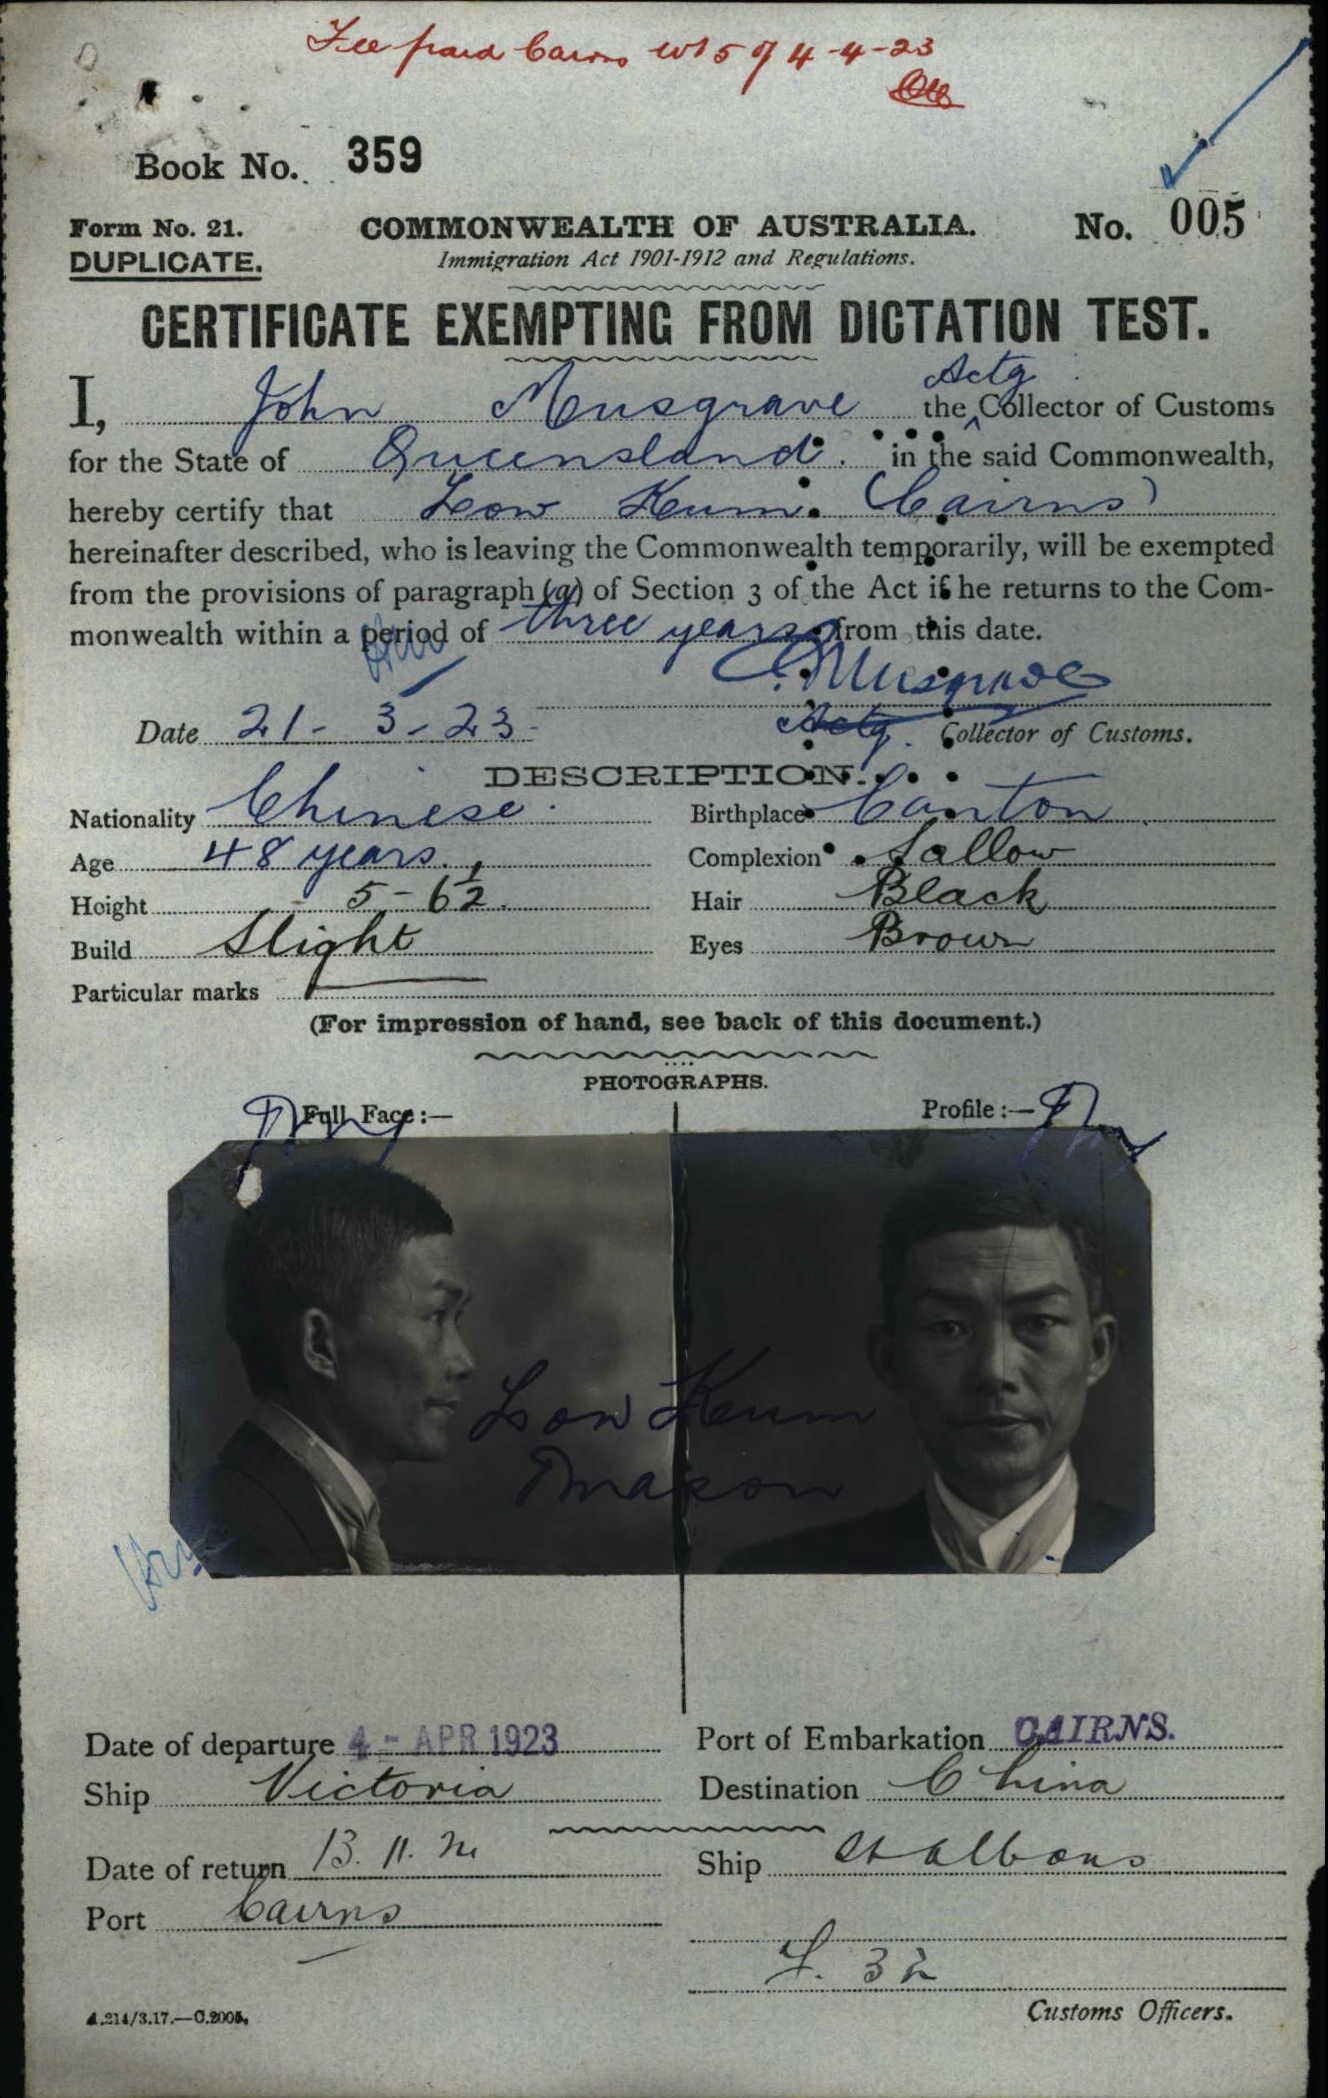 Fee paid Cairns of 4-4-23
Book No. 359
Form No. 21.
DUPLICATE.
COMMONWEALTH OF AUSTRALIA.
No. 005
Immigration Act 1901-1912 and Regulations.
CERTIFICATE EXEMPTING FROM DICTATION TEST.
I, John Musgrave the Actg Collector of Customs
for the State of Queensland. in the said Commonwealth,
hereby certify that Low Kum. (Cairns)
hereinafter described, who is leaving the Commonwealth temporarily, will be exempted
from the provisions of paragraph (a) of Section 3 of the Act if he returns to the Com-
monwealth within a period of three years from this date.
Musgrave
Date 21-3-23- Actg. Collector of Customs.
DESCRIPTION.
Nationality Chinese. Birthplace Canton
Age 48 years. Complexion Sallow
Height 5-6½. Hair Black
Build Slight Eyes Brown
Particular marks
(For impression of hand, see back of this document.)
PHOTOGRAPHS.
Full Face:— Profile:—
Low Kum
Date of departure 4-APR 1923 Port of Embarkation CAIRNS.
Ship Victoria Destination China
Date of return 13.11. Ship St Albans
Port Cairns
F. 32
A.214/3.17.—C.2005. Customs Officers.